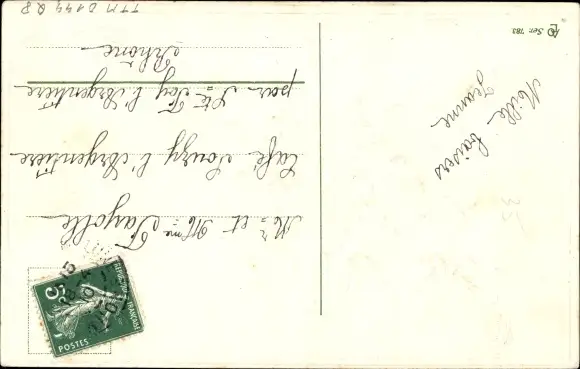 Mille baisers
Jeanne
Mr et Mme Fayolle
Café Souzy l'Argentière
par Ste Foy l'Argentière
Rhône
REPUBLIQUE FRANÇAISE
5
POSTES
Ser. 783